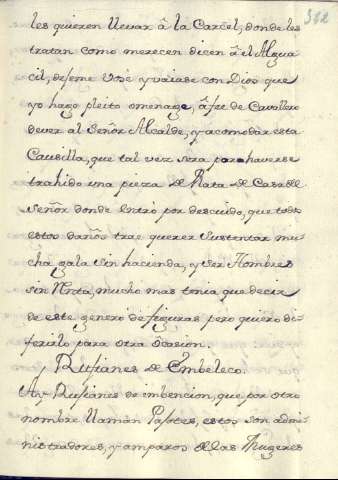 342
les quieren llevar â la Carcel, donde les
tratan como merecen dicen â el Algua-
cil, dejeme Vosé y vaiase con Dios que
yo hago pleito omenage, â feé de Cavallero
de ver al Señor Alcalde, y acomodar esta
Causilla, que tal vez sera por haverse
trahido una pieza de Plata de Casa del
Señor donde entró por descuido, que todos
estos daños trae querer sustentar mu-
cha gala sin hacienda, y ser Hombres
sin Renta, mucho mas tenia que decir
de este genero de figuras pero quiero di-
ferirlo para otra ôcasion.
Rufianes de Embeleco.
Ay Rufianes de imbencion, que por otro
nombre llaman Pastes, estos son admi-
nistradores, y amparos de las Mugeres